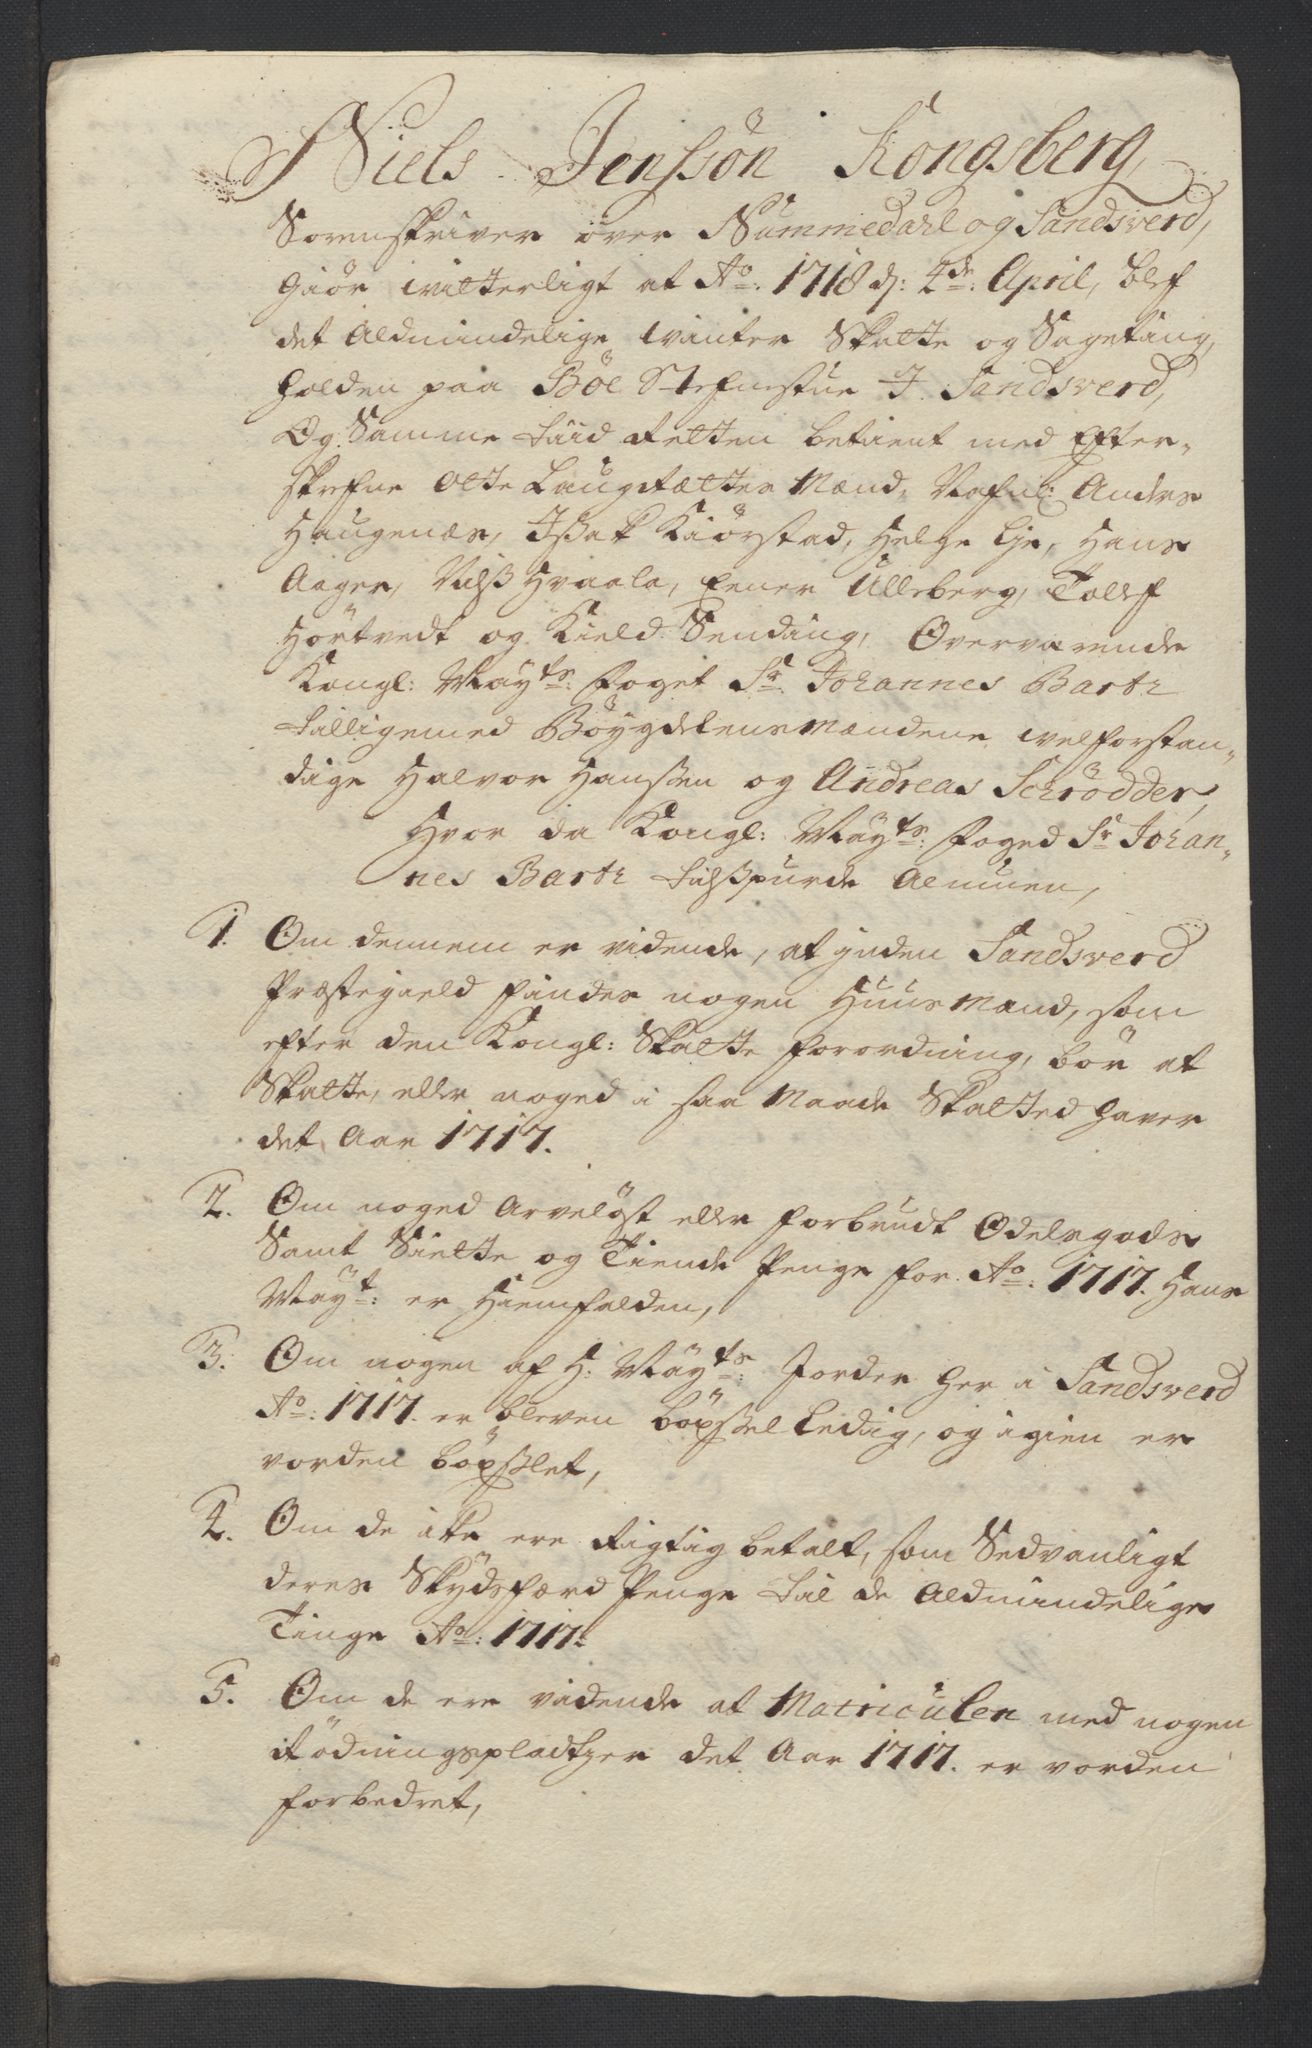 Niels Jenssön Kongsberg,
Sorenskriver över Nummedahl og Sandsverd,
Giör witterligt at Ao: 1718 d: 4de: April, blef
det Aldmindelige winter Skatte og Sageting,
holden paa Böe Stefnestue J. Sandsverd,
Og Samme tiid Retten betient med Efter-
skrefne Otte Laugrættes Mænd, Nafnl: Anders
Haugenæs, Jsak Kiörstad, Helge Eje, Hans
Aager, Nilß Hvaala, Ener Ulleberg, Tollef
Hörtvedt og Kield Sending, Overværende
Kongl: Mayts: Foget Sr. Johannes Bartz
tilligemed Böygdelensmændene welforstan-
dige Halvor Hanssen og Andreas Schrödder,
Hvor da Kongl: Mayts: Foged Sr Johan-
nes Bartz tilßpurde Almuen,
1. Om dennem er vidende, at jnden Sandsverd
Præstegield findes nogen Huusmænd, som
efter den Kongl: Skatte forordning, bör at
Skatte, eller noged i saa Maade Skatted haver
det Aar 1717.
2. Om noged Arvelöst eller forbrudt Odelsgods
Samt Siette og Tiende Penge for Ao: 1717. Hans
Mayt: er Hiemfalden,
3. Om nogen af H: Mayts: Jorder her i Sandsverd
Ao: 1717. er bleven böxsel Ledig, og igien er
vorden böxslet,
4. Om de ikke ere Rigtig betalt, som Sedvanligt
deres Skydsfærd Penge til de Aldmindelige
Tinge Ao: 1717:
5. Om de ere vidende at Matriculen med nogen
Rödningspladtzer det Aar 1717. er vorden
forbedret,